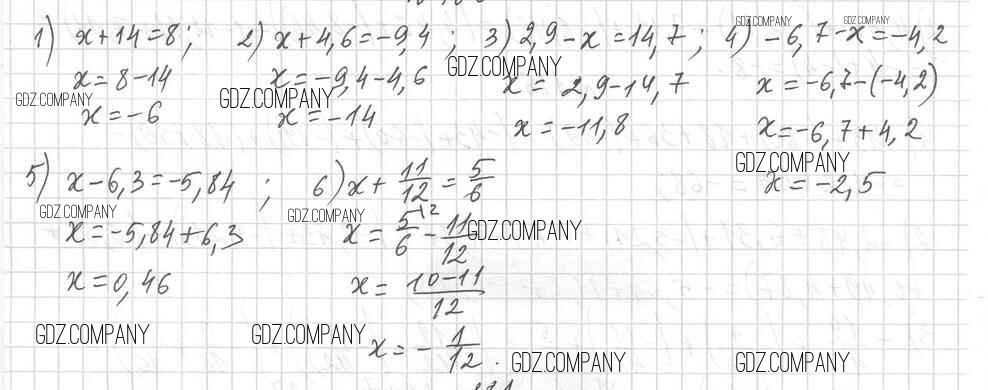 1) x+14=8; 2) x+4,6=-9,4; 3) 2,9-x=14,7; 4) -6,7-x=-4,2
x=8-14 x=-9,4-4,6 x=2,9-14,7 x=-6,7-(-4,2)
x=-6 x=-14 x=-11,8 x=-6,7+4,2
x=-2,5
5) x-6,3=-5,84; 6) x+11/12=5/6
x=-5,84+6,3 x=5/6^{\2}-11/12
x=0,46 x=10-11/12
x=-1/12.
GDZ.COMPANY GDZ.COMPANY
GDZ.COMPANY
GDZ.COMPANY GDZ.COMPANY
GDZ.COMPANY
GDZ.COMPANY GDZ.COMPANY GDZ.COMPANY
GDZ.COMPANY GDZ.COMPANY GDZ.COMPANY GDZ.COMPANY